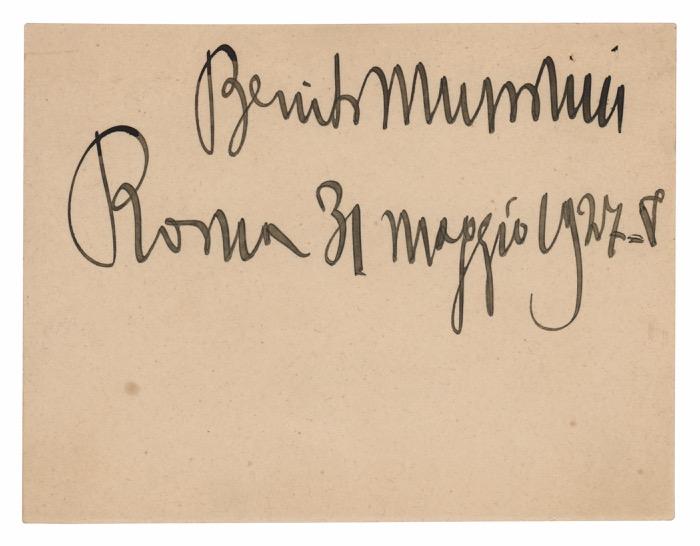 Benito Mussolini
Roma 31 maggio 1927 = V